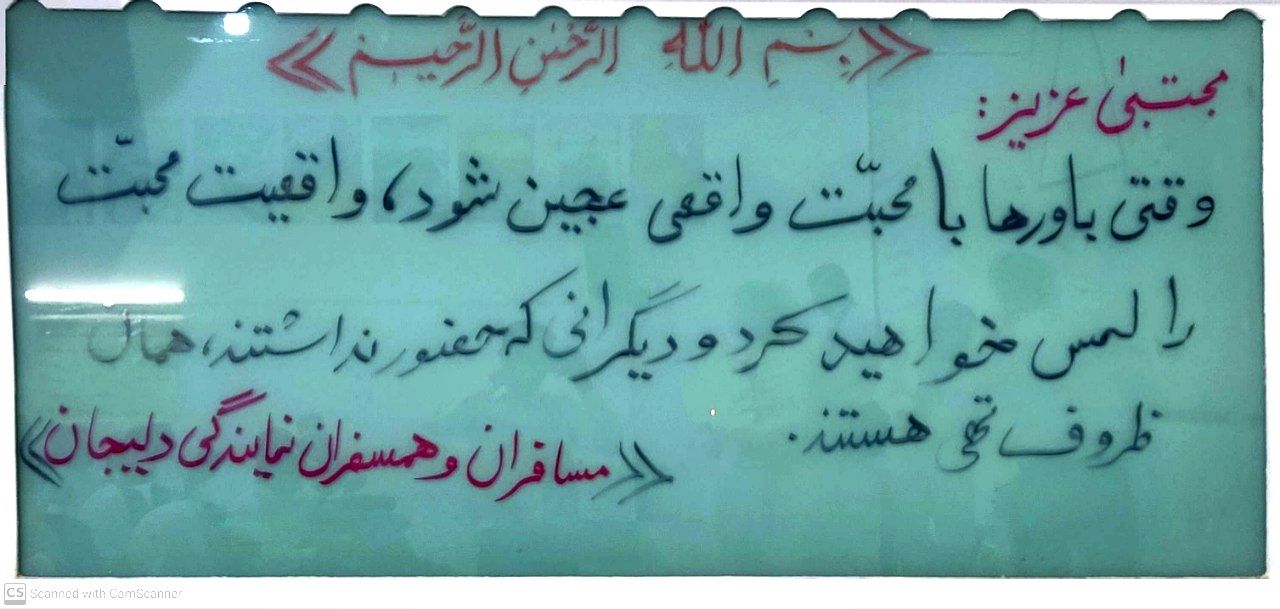 «بِسْمِ اللّٰهِ الرَّحْمٰنِ الرَّحيـمِ»
مجتبیٰ عزیز:
وقتی باورها با محبّت واقعی عجین شود، واقعیت محبّت
را لمس خواهید کرد و دیگرانی که حضور نداشتند، همال
ظروف تهی هستند.
«مسافران و همسفران نمایندگی دلیجان»
CS Scanned with CamScanner